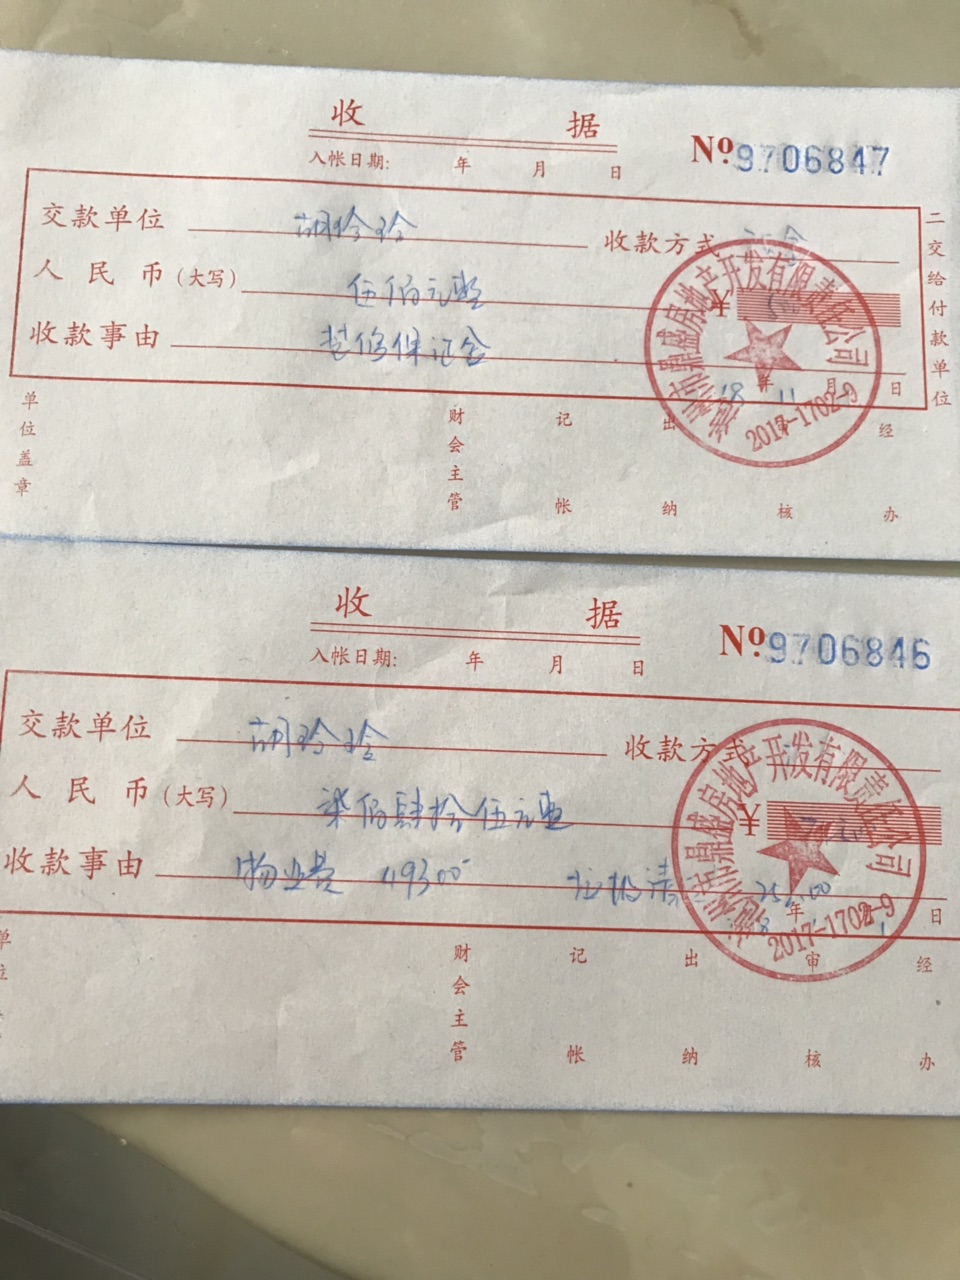 收 据
入帐日期: 年 月 日
Nº 9706847
交款单位 胡玲玲 收款方式 现金
人民币(大写) 伍佰元整 ¥
收款事由 装修保证金
18 年 11 月 日
二交给付款单位
鼎盛房地产开发有限责任公司
2017-1702-9
单位盖章 财会主管 记帐 出纳 核 经办
收 据
入帐日期: 年 月 日
Nº 9706846
交款单位 胡玲玲 收款方式
人民币(大写) 柒佰肆拾伍元整 ¥
收款事由 物业费 493.00 垃圾清 252.00
18 年 日
鼎盛房地产开发有限责任公司
2017-1702-9
单位 财会主管 记帐 出纳 审核 经办